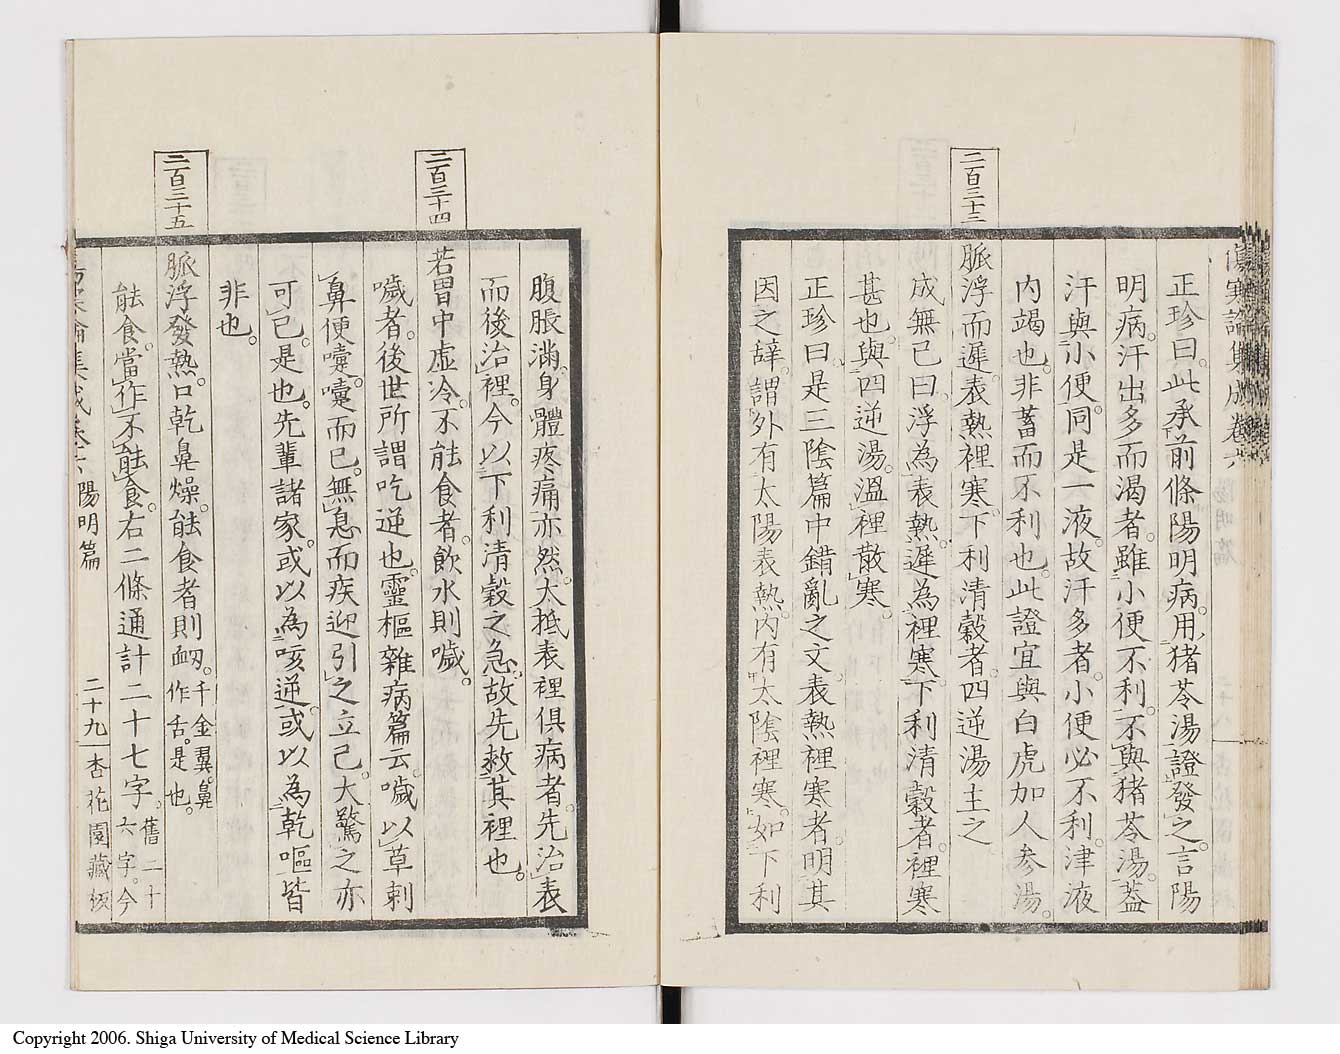 傷寒論集成卷六
陽明篇
正珍曰。此承前條陽明病。用豬苓湯證發之。言陽
明病。汗出多而渴者。雖小便不利。不與豬苓湯。蓋
汗與小便。同是一液。故汗多者。小便必不利。津液
内竭也。非蓄而不利也。此證宜與白虎加人参湯。
二百三十三
脈浮而遲。表熱裡寒。下利清穀者。四逆湯主之
成無己曰。浮為表熱。遲為裡寒。下利清穀者。裡寒
甚也。與四逆湯。溫裡散寒。
正珍曰。是三陰篇中錯亂之文。表熱裡寒者。明其
因之辭。謂外有太陽表熱。内有太陰裡寒。如下利
腹脹滿。身體疼痛亦然。大抵表裡俱病者。先治表
而後治裡。今以下利清穀之急。故先救其裡也。
二百三十四
若胃中虚冷。不能食者。飲水則噦。
噦者。後世所謂吃逆也。靈樞雜病篇云。噦以草刺
鼻便嚏。嚏而已。無息而疾迎引之立已。大驚之亦
可已。是也。先輩諸家。或以為咳逆。或以為乾嘔。皆
非也。
二百三十五
脈浮發熱。口乾鼻燥。能食者則衂。千金翼。鼻作舌。是也。
能食。當作不能食。右二條通計二十七字。舊二十六字。今
陽明篇
二十九
杏花園藏板